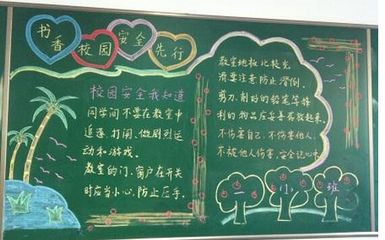 书香校园 安全先行
校园安全我知道
同学间不要在教室中
追逐、打闹、做剧烈运
动和游戏。
教室的门、窗户在开关
时应当小心,防止压手。
教室地板比较光
滑要注意防止滑倒。
剪刀、削好的铅笔等锋
利的物品应妥善放起来。
不伤害自己,不伤害他人,
不被他人伤害,安全记心中